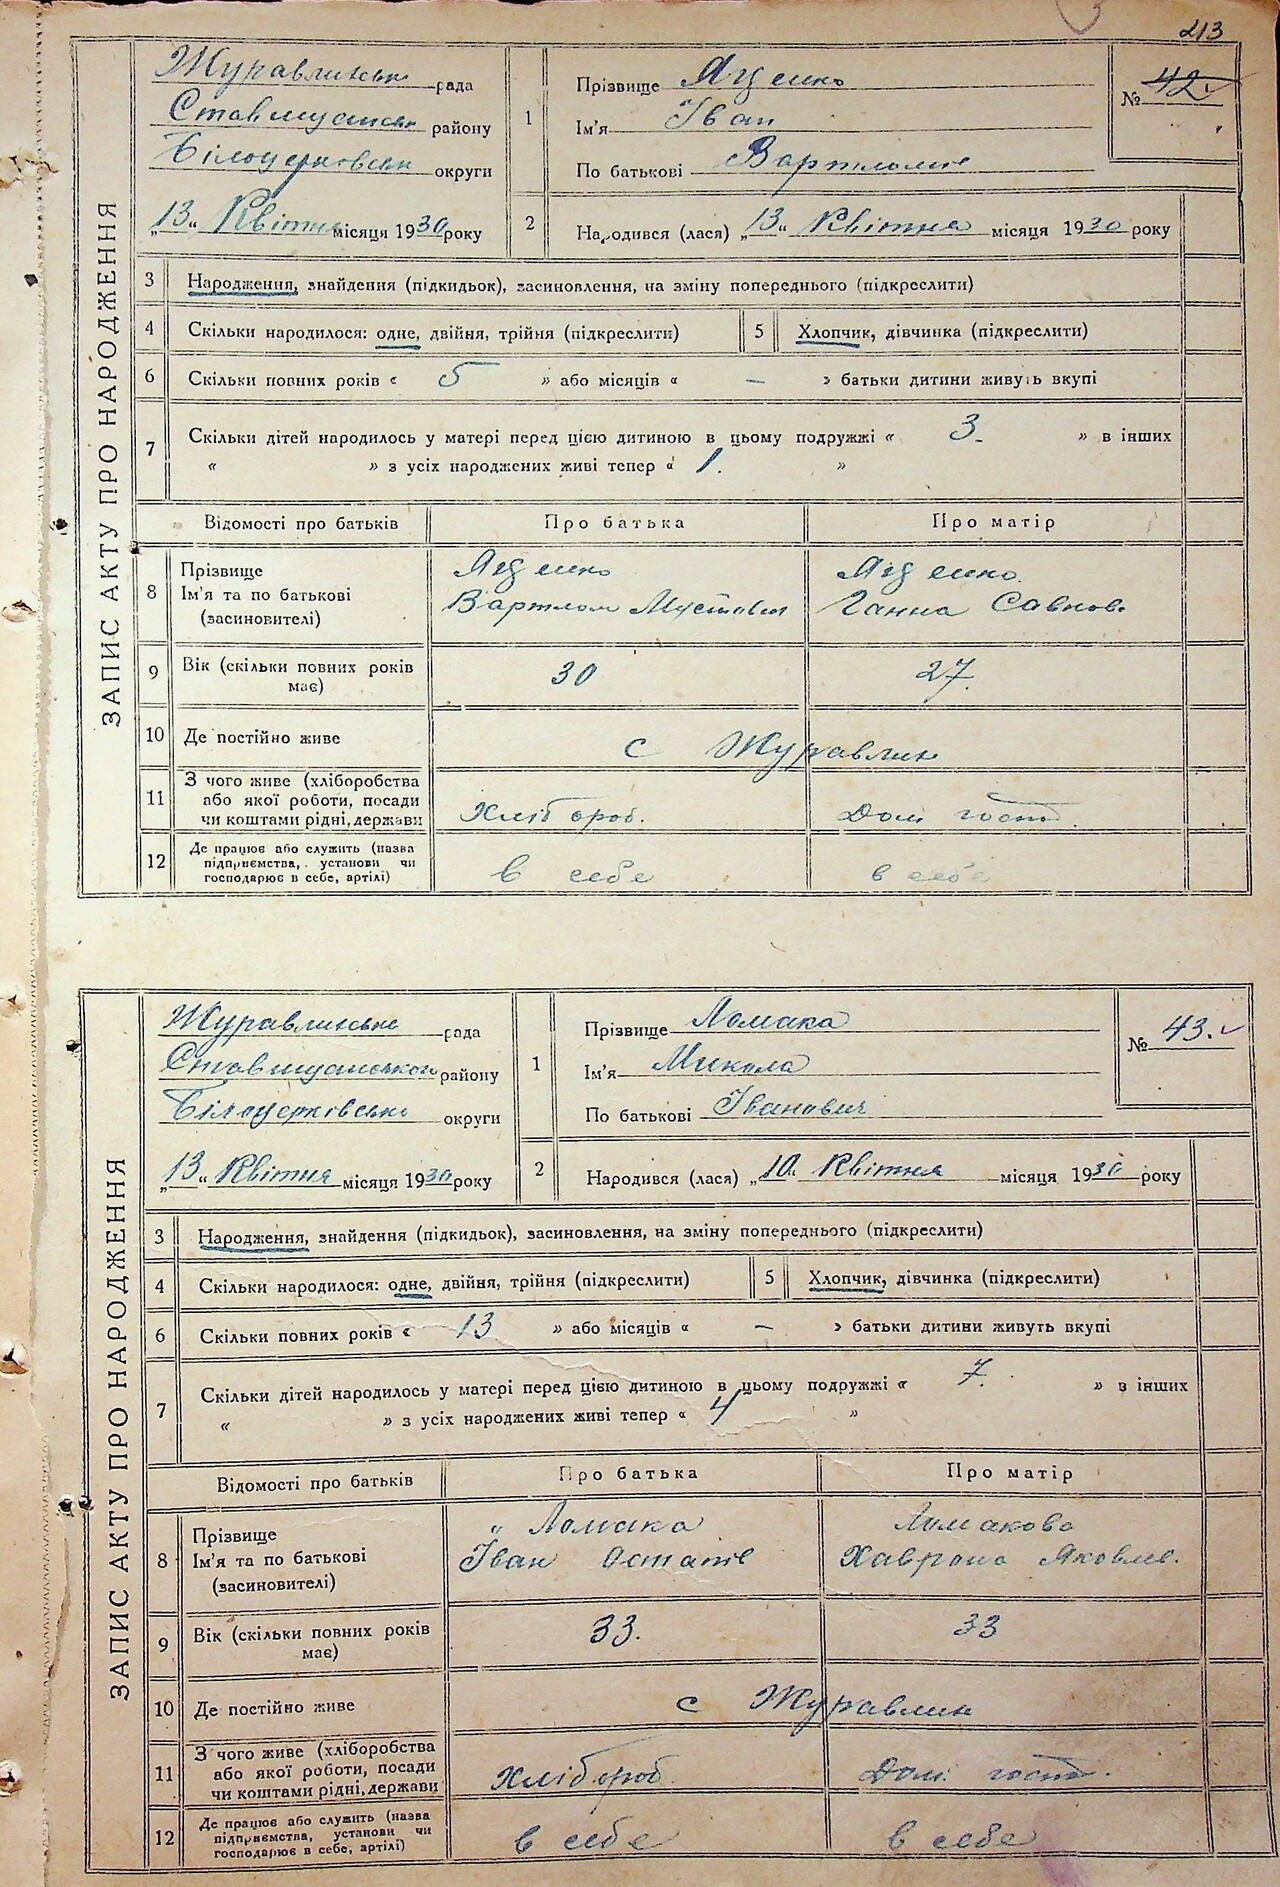 213
ЗАПИС АКТУ ПРО НАРОДЖЕННЯ
Журавлинська рада
Ставищанськ району
Білоцерковськ округи
„13“ Квітня місяця 1930 року
1
Прізвище Яценко
Ім'я Іван
По батькові
№ 42
2
Народився (лася) „13“ Квітня місяця 1930 року
3 Народження, знайдення (підкидьок), засиновлення, на зміну попереднього (підкреслити)
4 Скільки народилося: одне, двійня, трійня (підкреслити) 5 Хлопчик, дівчинка (підкреслити)
6 Скільки повних років « 5 » або місяців « – » батьки дитини живуть вкупі
7 Скільки дітей народилось у матері перед цією дитиною в цьому подружжі « 3. » в інших
« » з усіх народжених живі тепер « 1. »
Відомості про батьків Про батька Про матір
8 Прізвище Яценко Яценко.
Ім'я та по батькові Вартлом Ганна
(засиновителі)
9 Вік (скільки повних років має) 30 27.
10 Де постійно живе с Журавлин
11 З чого живе (хліборобства
або якої роботи, посади
чи коштами рідні, держави Хлібороб. Дом. господ.
12 Де працює або служить (назва
підприємства, установи чи
господарює в себе, артілі) в себе в себе
ЗАПИС АКТУ ПРО НАРОДЖЕННЯ
Журавлинська рада
Ставищанської району
Білоцерківська округи
„13“ Квітня місяця 1930 року
1
Прізвище Ломака
Ім'я Микола
По батькові Іванович
№ 43.
2
Народився (лася) „10“ Квітня місяця 1930 року
3 Народження, знайдення (підкидьок), засиновлення, на зміну попереднього (підкреслити)
4 Скільки народилося: одне, двійня, трійня (підкреслити) 5 Хлопчик, дівчинка (підкреслити)
6 Скільки повних років « 13 » або місяців « – » батьки дитини живуть вкупі
7 Скільки дітей народилось у матері перед цією дитиною в цьому подружжі « 7. » в інших
« » з усіх народжених живі тепер « 4 »
Відомості про батьків Про батька Про матір
8 Прізвище „ Ломака Ломакова
Ім'я та по батькові Іван Остапів Хаврона Яковлев.
(засиновителі)
9 Вік (скільки повних років має) 33. 33
10 Де постійно живе с Журавлин
11 З чого живе (хліборобства
або якої роботи, посади
чи коштами рідні, держави Хлібороб Дом. господ.
12 Де працює або служить (назва
підприємства, установи чи
господарює в себе, артілі) в себе в себе